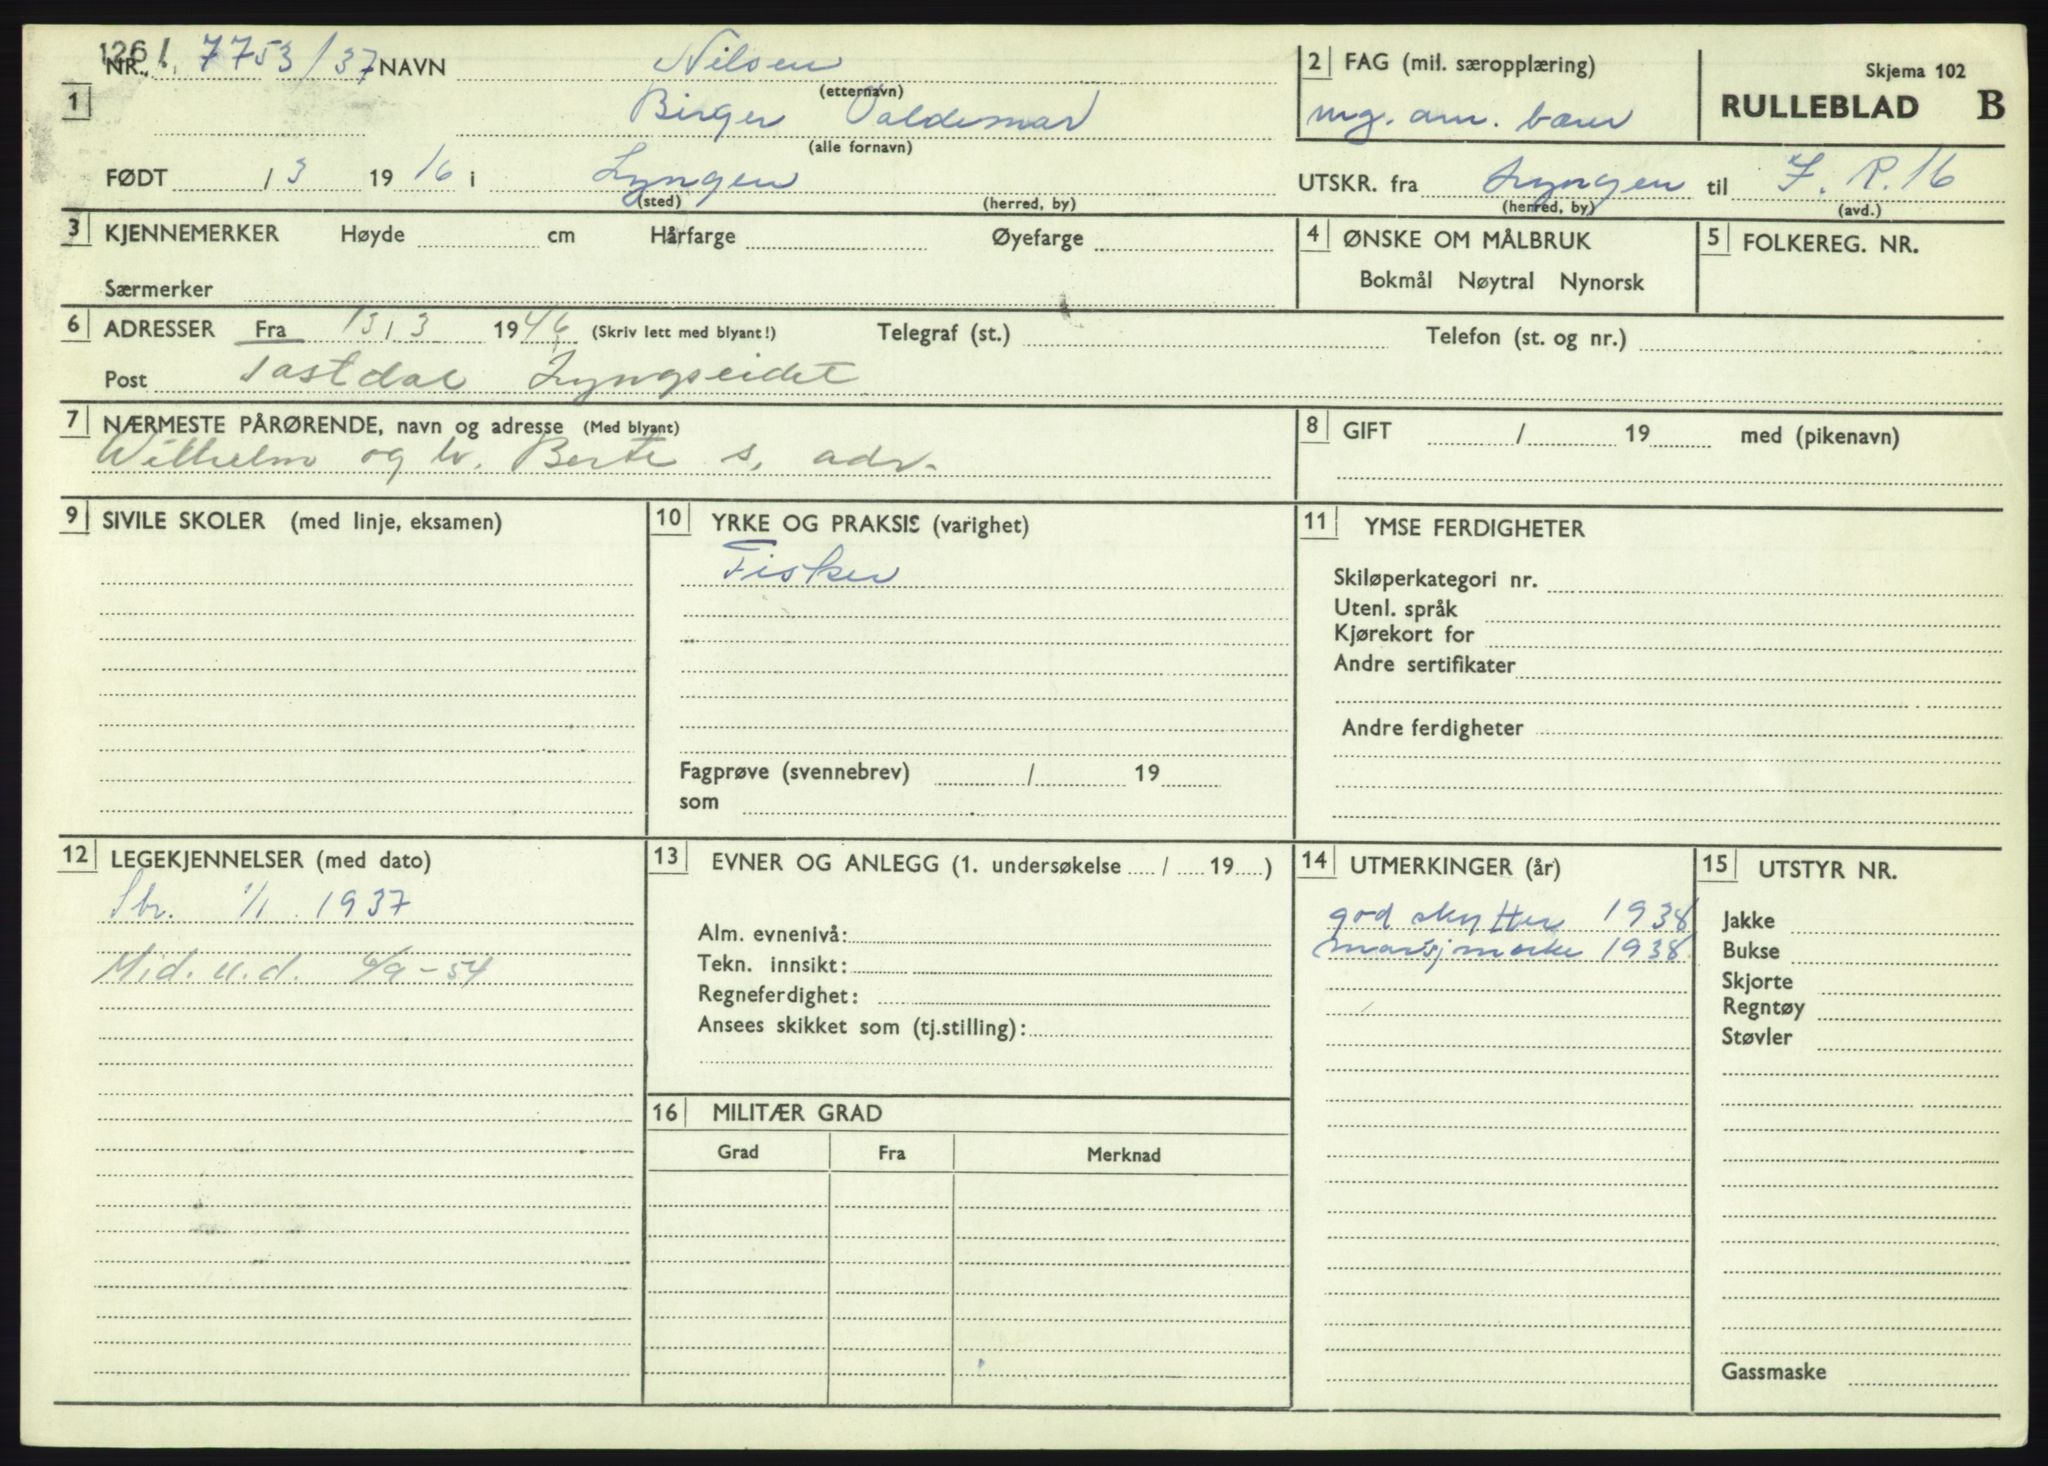 1261
NR. 7753/37 NAVN Nilsen
(etternavn)
1
Birger Valdemar
(alle fornavn)
FØDT / 3 19 16 i Lyngen
(sted) (herred, by)
2 FAG (mil. særopplæring)
mg. am. bærer
Skjema 102
RULLEBLAD B
UTSKR. fra Lyngen til I. R. 16
(herred, by) (avd.)
3 KJENNEMERKER Høyde cm Hårfarge Øyefarge
Særmerker
4 ØNSKE OM MÅLBRUK
Bokmål Nøytral Nynorsk
5 FOLKEREG. NR.
6 ADRESSER Fra 13 / 3 19 46 (Skriv lett med blyant!) Telegraf (st.) Telefon (st. og nr.)
Post Lyngseidet
7 NÆRMESTE PÅRØRENDE, navn og adresse (Med blyant)
Wilhelm og h. Berte s. adr.
8 GIFT / 19 med (pikenavn)
9 SIVILE SKOLER (med linje, eksamen)
10 YRKE OG PRAKSIS (varighet)
Fisker
Fagprøve (svennebrev) / 19
som
11 YMSE FERDIGHETER
Skiløperkategori nr.
Utenl. språk
Kjørekort for
Andre sertifikater
Andre ferdigheter
12 LEGEKJENNELSER (med dato)
Str. 1/1 1937
Mid. u.d. 6/9-54
13 EVNER OG ANLEGG (1. undersøkelse / 19 )
Alm. evnenivå:
Tekn. innsikt:
Regneferdighet:
Ansees skikket som (tj.stilling):
14 UTMERKINGER (år)
god skytter 1938
marsjmerke 1938
15 UTSTYR NR.
Jakke
Bukse
Skjorte
Regntøy
Støvler
Gassmaske
16 MILITÆR GRAD
Grad Fra Merknad